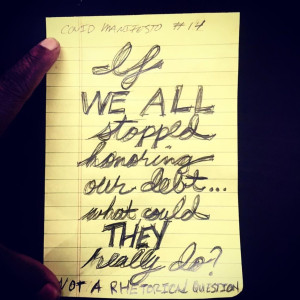 COVID MANIFESTO #14
If
WE ALL
stopped
honoring
our debt...
what could
THEY
really do?
NOT A RHETORICAL QUESTION